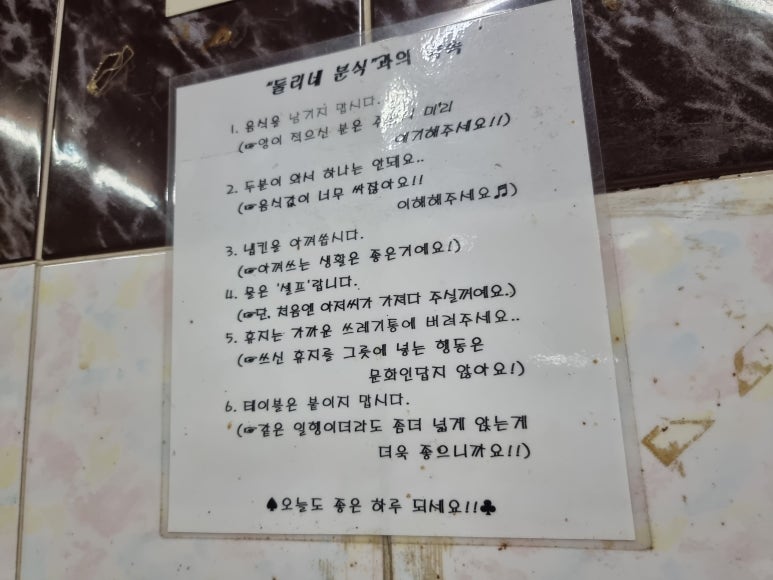 "둘리네 분식"과의 약속
1. 음식을 남기지 맙시다.
(☞양이 적으신 분은 미리
얘기해주세요!!)
2. 두분이 와서 하나는 안돼요..
(☞음식값이 너무 싸잖아요!!
이해해주세요♬)
3. 냅킨을 아껴씁시다.
(☞아껴쓰는 생활은 좋은거에요!)
4. 물은 '셀프'랍니다.
(☞단, 처음엔 아저씨가 가져다 주실꺼예요.)
5. 휴지는 가까운 쓰레기통에 버려주세요..
(☞쓰신 휴지를 그릇에 넣는 행동은
문화인답지 않아요!)
6. 테이블은 붙이지 맙시다.
(☞같은 일행이더라도 좀더 넓게 앉는게
더욱 좋으니까요!!)
♠오늘도 좋은 하루 되세요!!♣